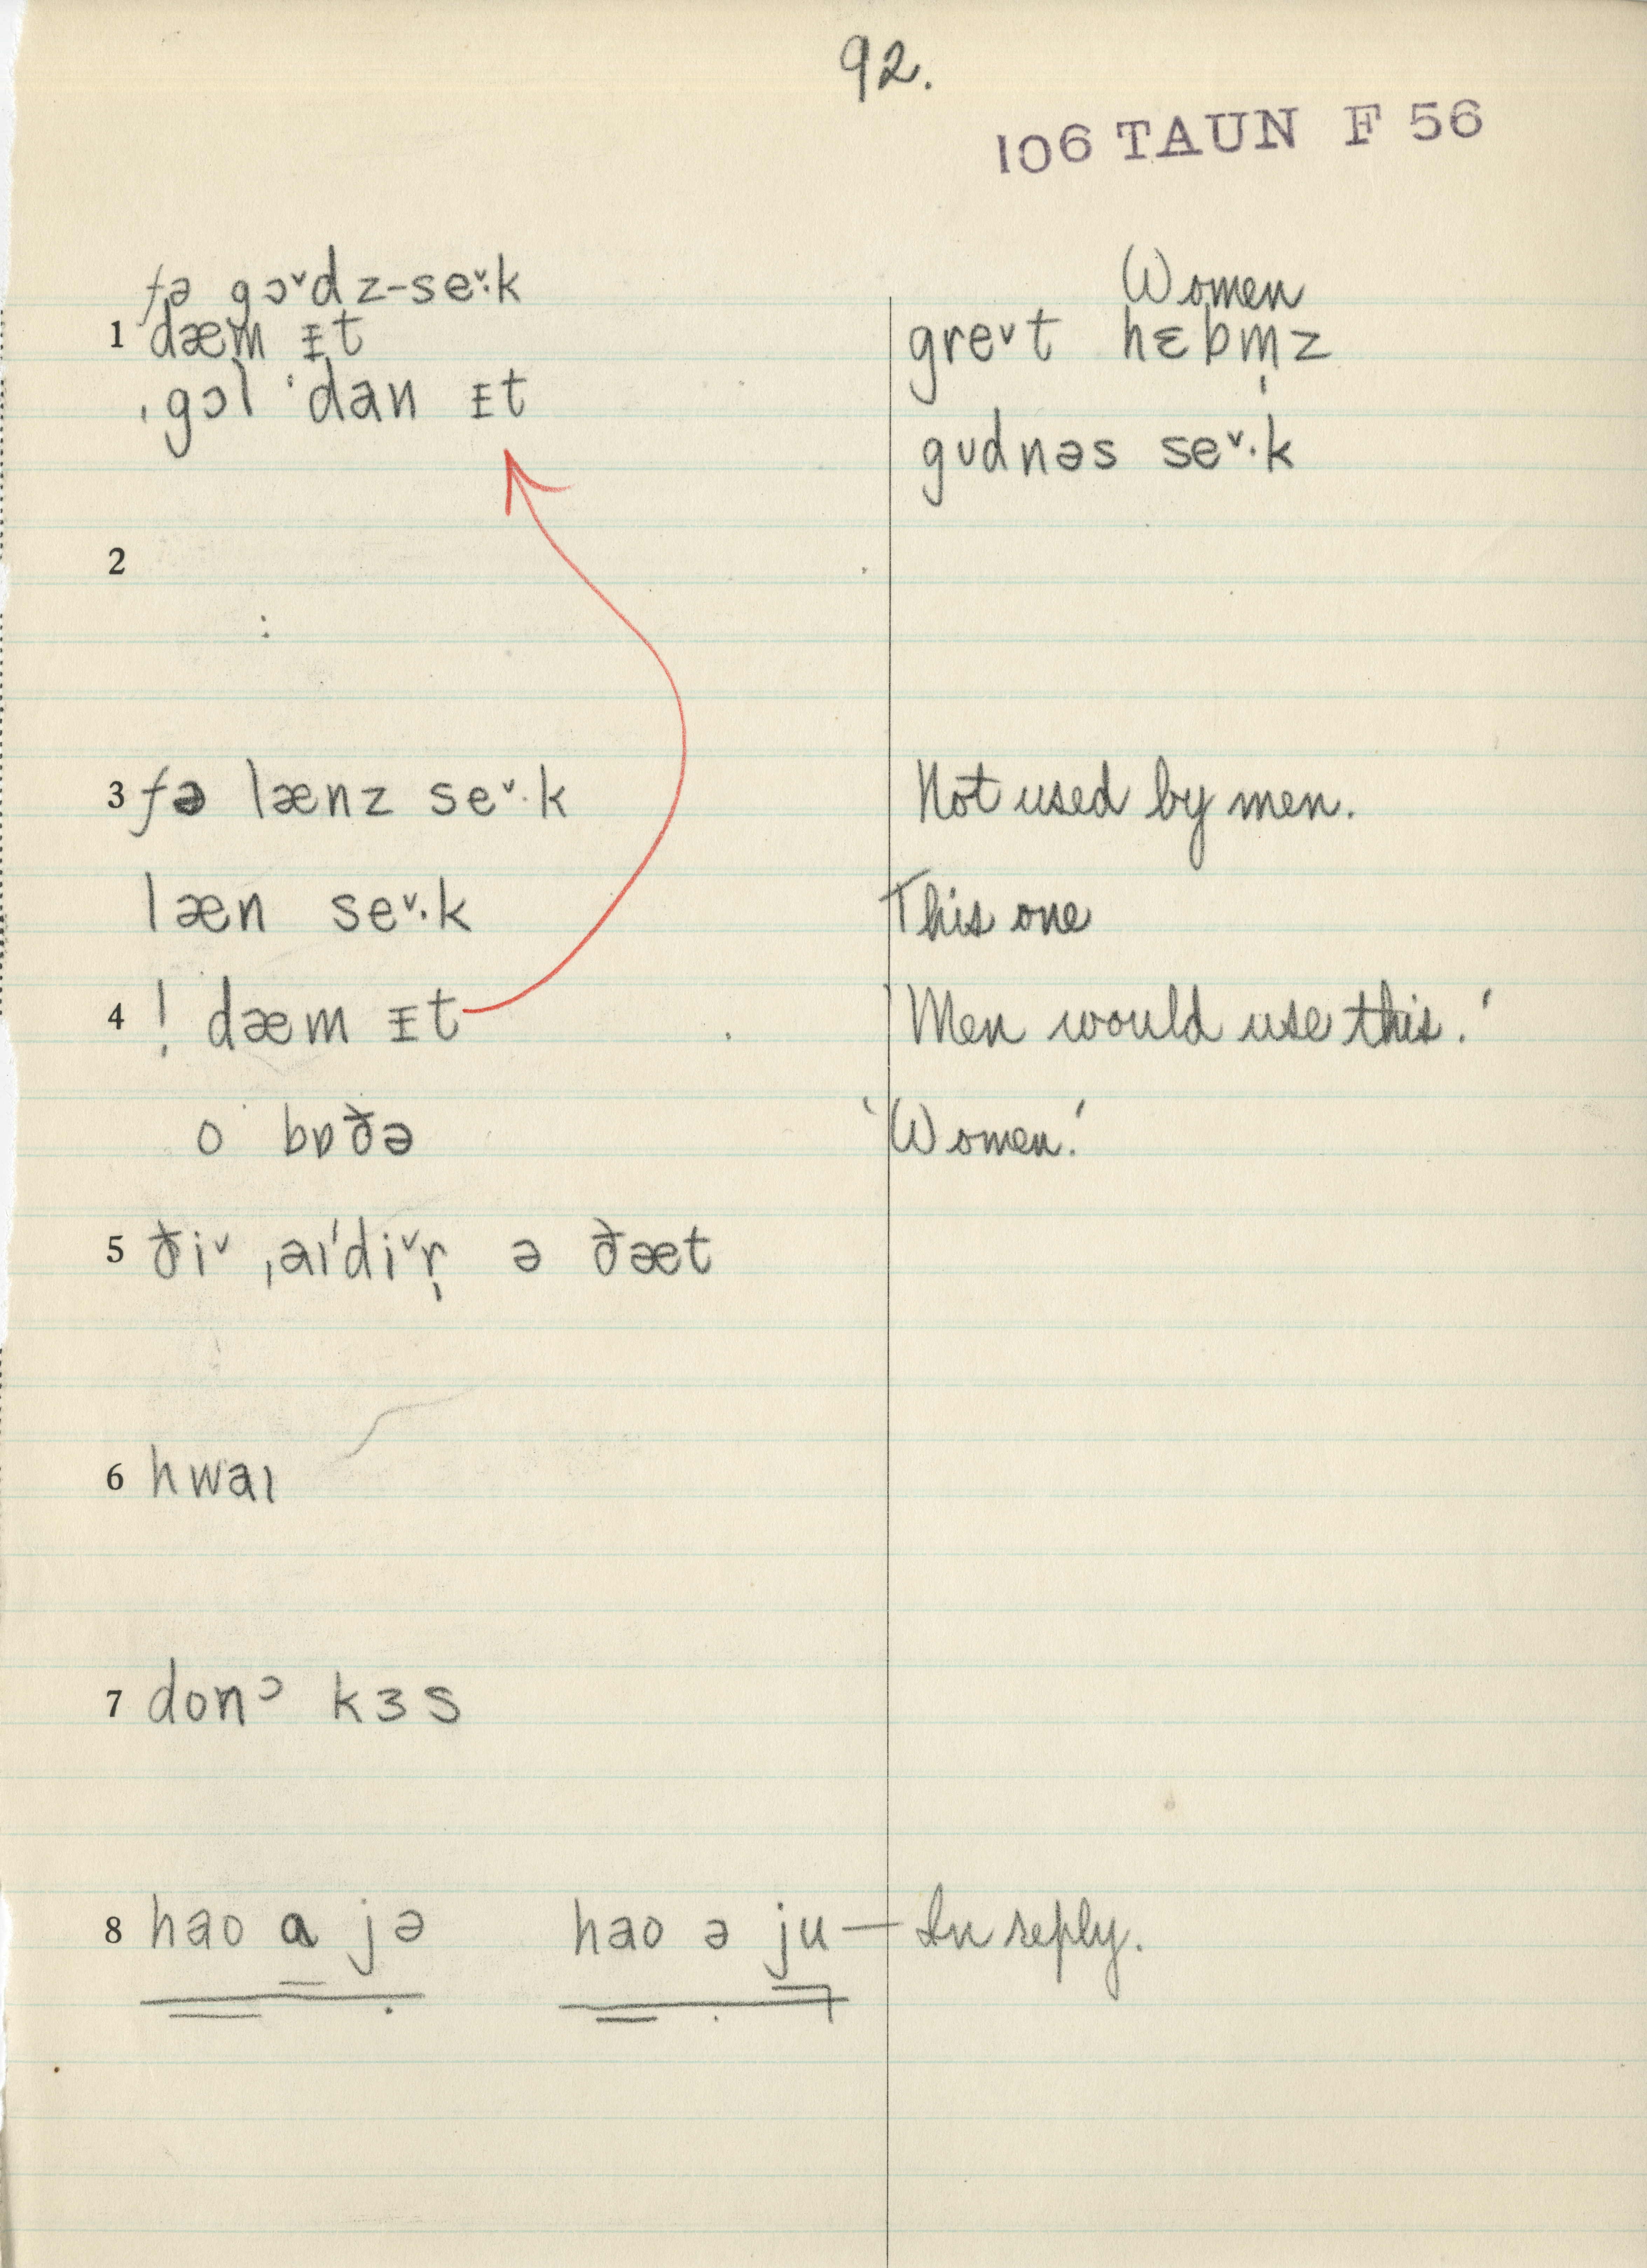 92.
106 TAUN F 56
fə gɔˇdz-seˇ·k
Women
1 dæm ɪt
greˇt hɛbm̩z
ˌgɔl ˈdan ɪt
gʊdnəs seˇ·k
2
3 fə lænz seˇ·k
Not used by men.
læn seˇ·k
This one
4 ! dæm ɪt
'Men would use this.'
o bɒðə
'Women.'
5 ðiˇ ˌaɪˈdiˇr̩ ə ðæt
6 hwaɪ
7 donᵓ kɜs
8 hao a jə hao ə ju — In reply.